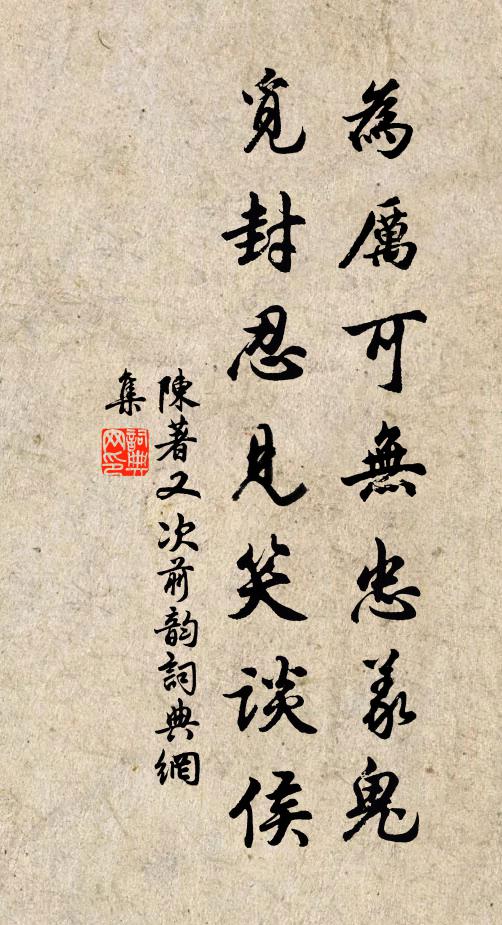 為厲可無忠義鬼
覓封忍見笑談侯
陳著又次前韵詞典網
集
詞典
网印